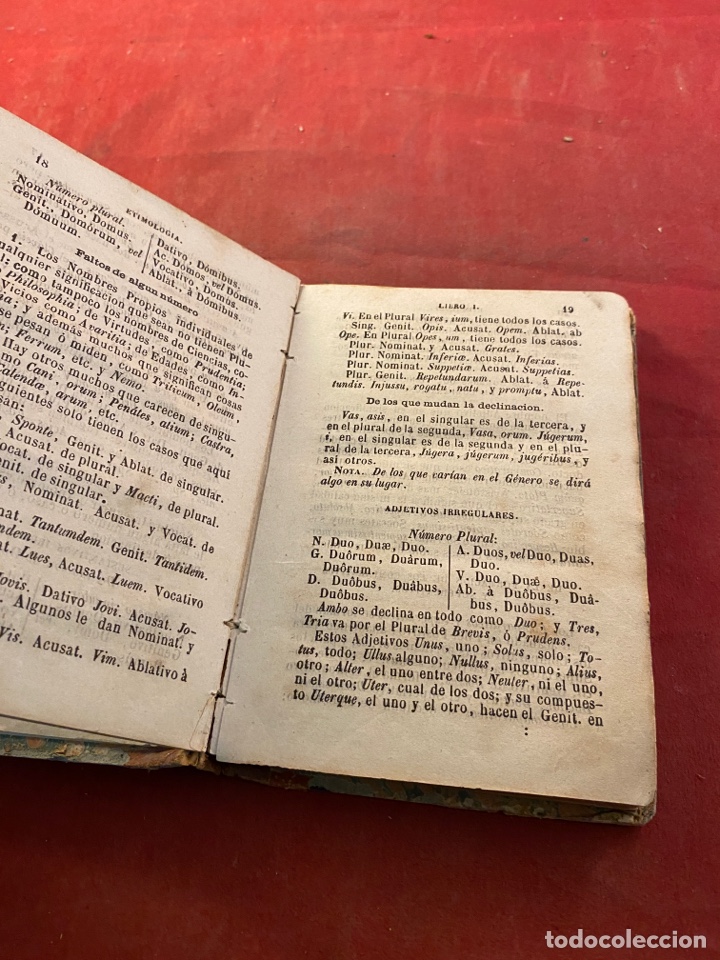 18
ETIMOLOGIA.
Número plural.
Nominativo, Domus.
Genit., Domórum, vel
Dómuum.
Dativo, Dómibus.
Ac. Domos, vel Domus.
Vocativo, Domus.
Ablat., à Dómibus.
Faltos de algun número
1. Los Nombres Propios individuales de
alquier significacion que sean no tienen Plu-
l; como tampoco los nombres de Ciencias, co-
Philosophia; de Virtudes, como Prudentia;
Vicios como Avaritia; de Edades, como In-
tia; y además muchos que significan cosas
se pesan ó miden, como Triticum, Oleum,
m; Ferrum, etc. y Nemo.
Hay otros muchos que carecen de singu-
mo Cani, orum; Penátes, atium; Castra,
Calendæ, arum, etc.
guientes solo tienen los casos que aquí
an:
Sponte, Genit. y Ablat. de singular.
Acusat. de plural.
Vocat. de singular y Macti, de plural.
nit. de singular.
s, Nominat. Acusat. y Vocat. de
nat. Tantumdem. Genit. Tantidem.
ndem.
at. Lues, Acusat. Luem. Vocativo
Jovis. Dativo Jovi. Acusat. Jo-
Algunos le dan Nominat. y
Vis. Acusat. Vim. Ablativo à
LIBRO I. 19
Vi. En el Plural Vires, ium, tiene todos los casos.
Sing. Genit. Opis. Acusat. Opem. Ablat. ab
Ope. En Plural Opes, um, tiene todos los casos.
Plur. Nominat. y Acusat. Grates.
Plur. Nominat. Inferiæ. Acusat. Inferias.
Plur. Nominat. Suppetiæ. Acusat. Suppetias.
Plur. Genit. Repetundarum. Ablat. à Repe-
tundis. Injussu, rogatu, natu, y promptu, Ablat.
De los que mudan la declinacion.
Vas, asis, en el singular es de la tercera, y
en el plural de la segunda, Vasa, orum. Júgerum,
i, en el singular es de la segunda y en el plu-
ral de la tercera, Júgera, júgerum, jugéribus, y
así otros.
NOTA. De los que varían en el Género se dirá
algo en su lugar.
ADJETIVOS IRREGULARES.
Número Plural:
N. Duo, Duæ, Duo.
G. Duôrum, Duàrum,
Duôrum.
D. Duôbus, Duàbus,
Duôbus.
A. Duos, vel Duo, Duas,
Duo.
V. Duo, Duæ, Duo.
Ab. à Duôbus, Duà-
bus, Duôbus.
Ambo se declina en todo como Duo; y Tres,
Tria va por el Plural de Brevis, ó Prudens.
Estos Adjetivos Unus, uno; Solus, solo; To-
tus, todo; Ullus alguno; Nullus, ninguno; Alius,
otro; Alter, el uno entre dos; Neuter, ni el uno,
ni el otro; Uter, cual de los dos; y su compues-
to Uterque, el uno y el otro, hacen el Genit. en
:
todocoleccion